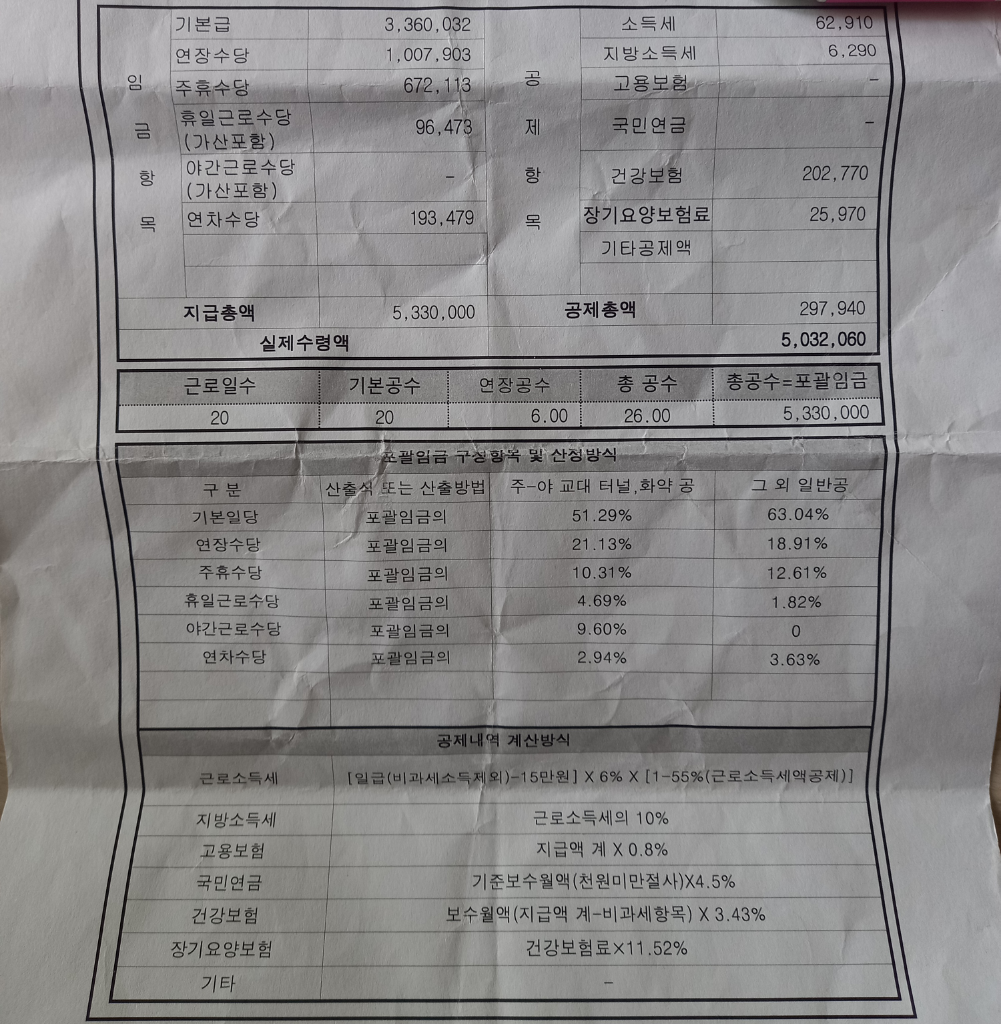 기본급 3,360,032 소득세 62,910
연장수당 1,007,903 지방소득세 6,290
임 주휴수당 672,113 공 고용보험 -
금 휴일근로수당 96,473 제 국민연금 -
(가산포함)
항 야간근로수당 - 항 건강보험 202,770
(가산포함)
목 연차수당 193,479 목 장기요양보험료 25,970
기타공제액
지급총액 5,330,000 공제총액 297,940
실제수령액 5,032,060
근로일수 기본공수 연장공수 총 공수 총공수=포괄임금
20 20 6.00 26.00 5,330,000
포괄임금 구성항목 및 산정방식
구 분 산출식 또는 산출방법 주-야 교대 터널,화약 공 그 외 일반공
기본일당 포괄임금의 51.29% 63.04%
연장수당 포괄임금의 21.13% 18.91%
주휴수당 포괄임금의 10.31% 12.61%
휴일근로수당 포괄임금의 4.69% 1.82%
야간근로수당 포괄임금의 9.60% 0
연차수당 포괄임금의 2.94% 3.63%
공제내역 계산방식
근로소득세 [일급(비과세소득제외)-15만원] X 6% X [1-55%(근로소득세액공제)]
지방소득세 근로소득세의 10%
고용보험 지급액 계 X 0.8%
국민연금 기준보수월액(천원미만절사)X4.5%
건강보험 보수월액(지급액 계-비과세항목) X 3.43%
장기요양보험 건강보험료×11.52%
기타 -